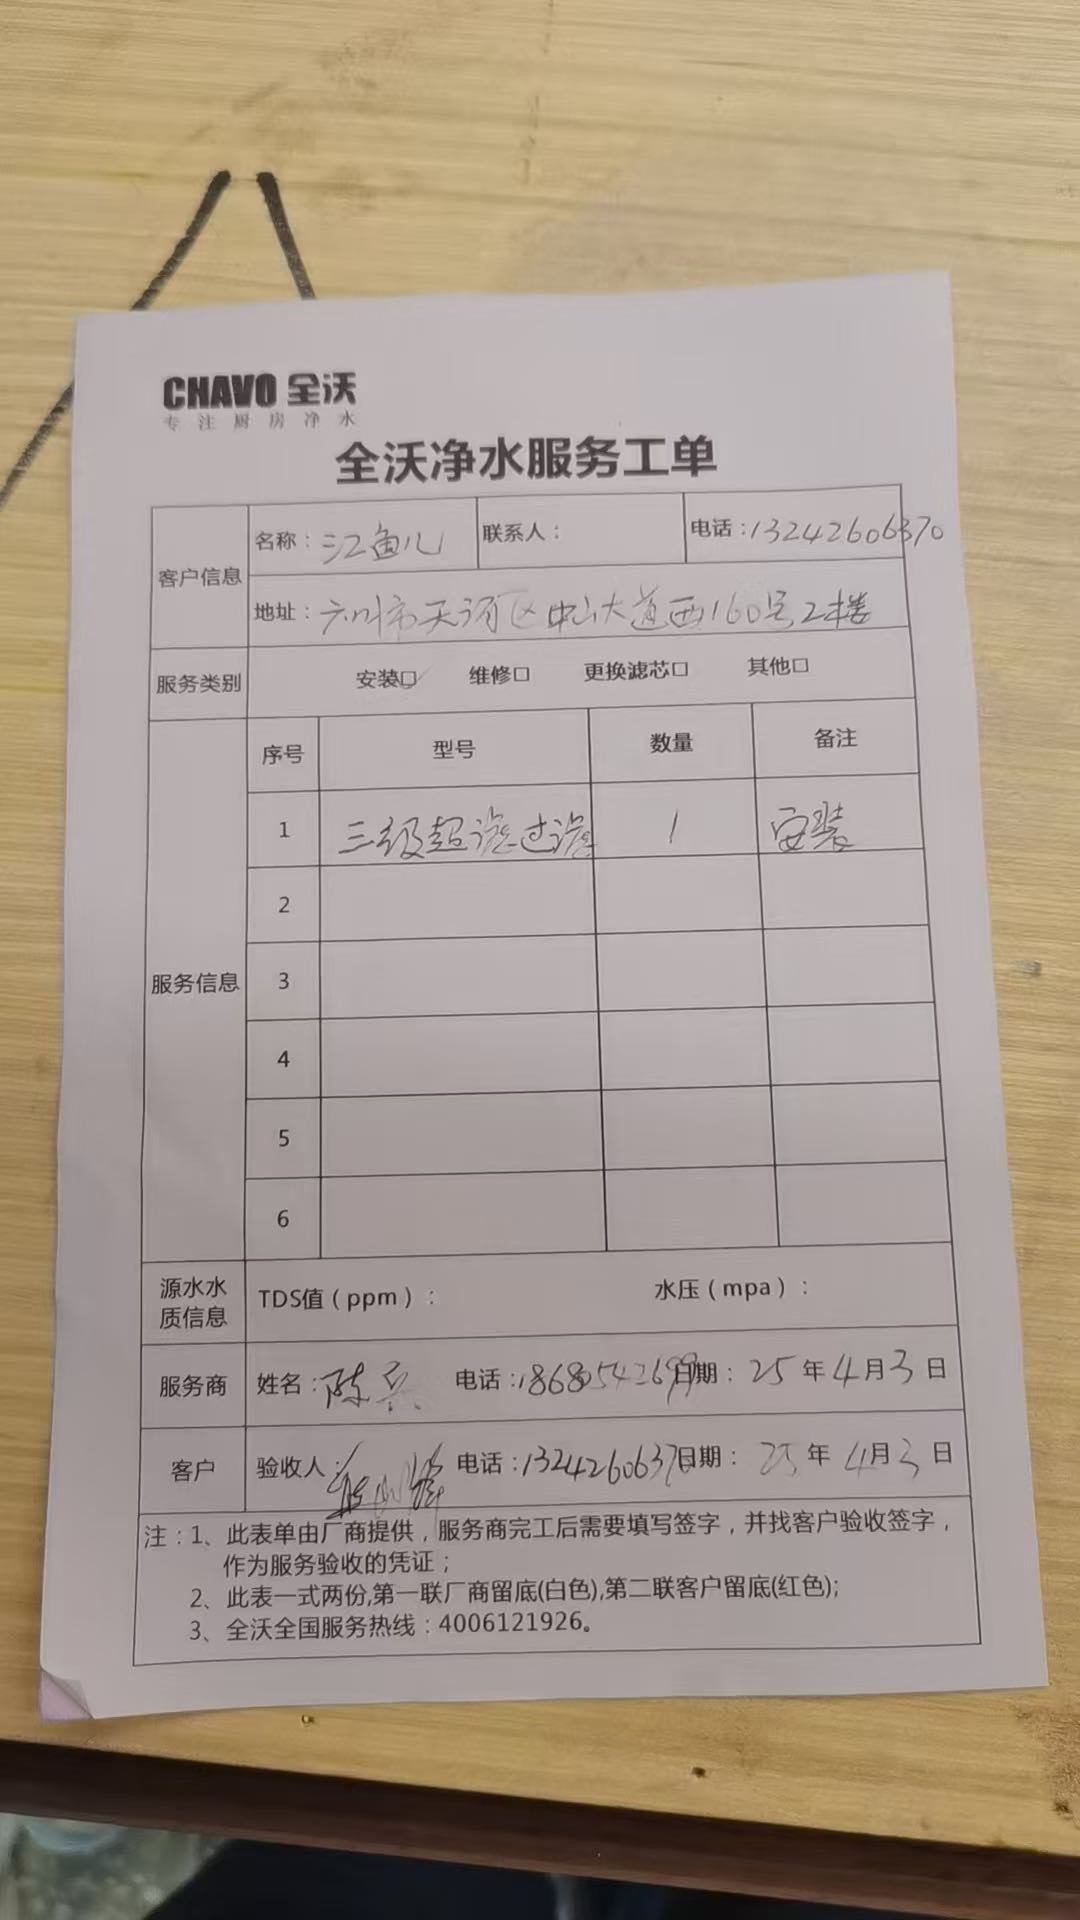 CHAVO 全沃
专注厨房净水
全沃净水服务工单
客户信息
名称：江鱼儿 联系人： 电话：13242606370
地址：广州市天河区中山大道西160号2楼
服务类别 安装□✓ 维修□ 更换滤芯□ 其他□
服务信息
序号 型号 数量 备注
1 三级超滤过滤 1 安装
2
3
4
5
6
源水水质信息 TDS值（ppm）： 水压（mpa）：
服务商 姓名：陈兵 电话：18680542699 日期：25年4月3日
客户 验收人： 电话：13242606370 日期：25年4月3日
注：1、此表单由厂商提供，服务商完工后需要填写签字，并找客户验收签字，
作为服务验收的凭证；
2、此表一式两份,第一联厂商留底(白色),第二联客户留底(红色);
3、全沃全国服务热线：4006121926。